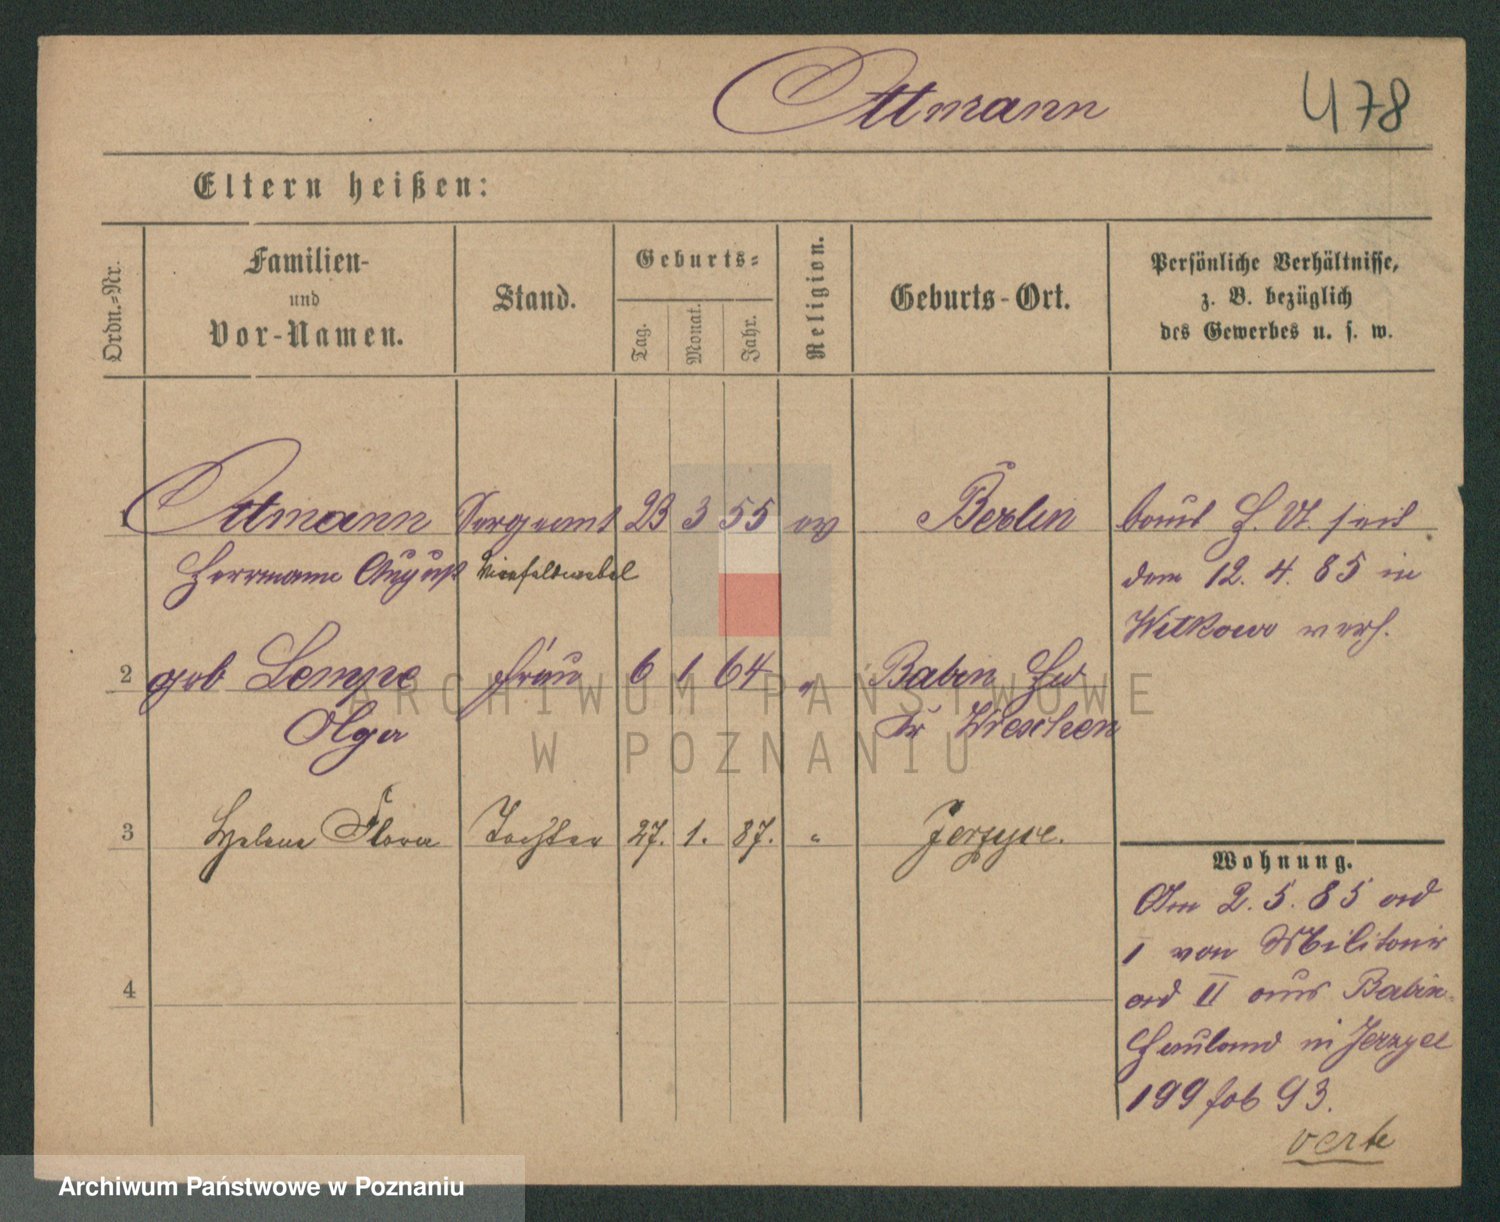 Ottmann
478
Eltern heißen:
Ordn.=Nr.
Familien-
und
Vor-Namen.
Stand.
Geburts=
Tag.
Monat.
Jahr.
Religion.
Geburts-Ort.
Persönliche Verhältnisse,
z. B. bezüglich
des Gewerbes u. s. w.
1 Ottmann Sergeant 23 3 55 ev Berlin
Herrmann August Vicefeldwebel
laut H. A. seit
dem 12. 4. 85 in
Witkowo verh.
2 geb Lempe Frau 6 1 64 " Babin Hld
Olga Kr Wreschen
3 Helene Flora Tochter 27. 1. 87. " Jerzyce.
4
Wohnung.
Am 2. 5. 85 ad
I von Militair
ad II aus Babin
Hauland in Jerzyce
199 fob 93.
verte
ARCHIWUM PAŃSTWOWE
W POZNANIU
Archiwum Państwowe w Poznaniu